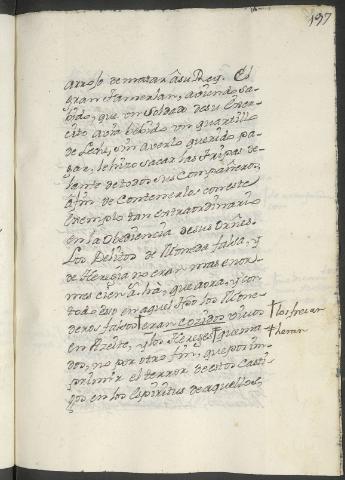 197
arrojo de matar â su Rey. El
gran Tamerlan, aviendo sa-
bido, que un Soldado de su Exer-
cito avia bebido un quartillo
de Leche, sin averlo querido pa-
gar, le hizo sacar las tripas de-
lante de todos sus Compañeros,
â fin de Contenerlos con este
Exemplo tan extraordinario
en la Obediencia de sus Ordnes.
Los Delitos de Moneda falsa, y
de Heregia no eran mas enor-
mes cien â. ha, que aora, y con
todo eso en aquel los Mone-
deros falsos † eran Cozidos vivos † los freian
en Azeite, y los Hereges † quema † heran
dos, no por otro fin, que por im-
primir el terror de estos Casti-
gos en los Espiritus de aquellos,